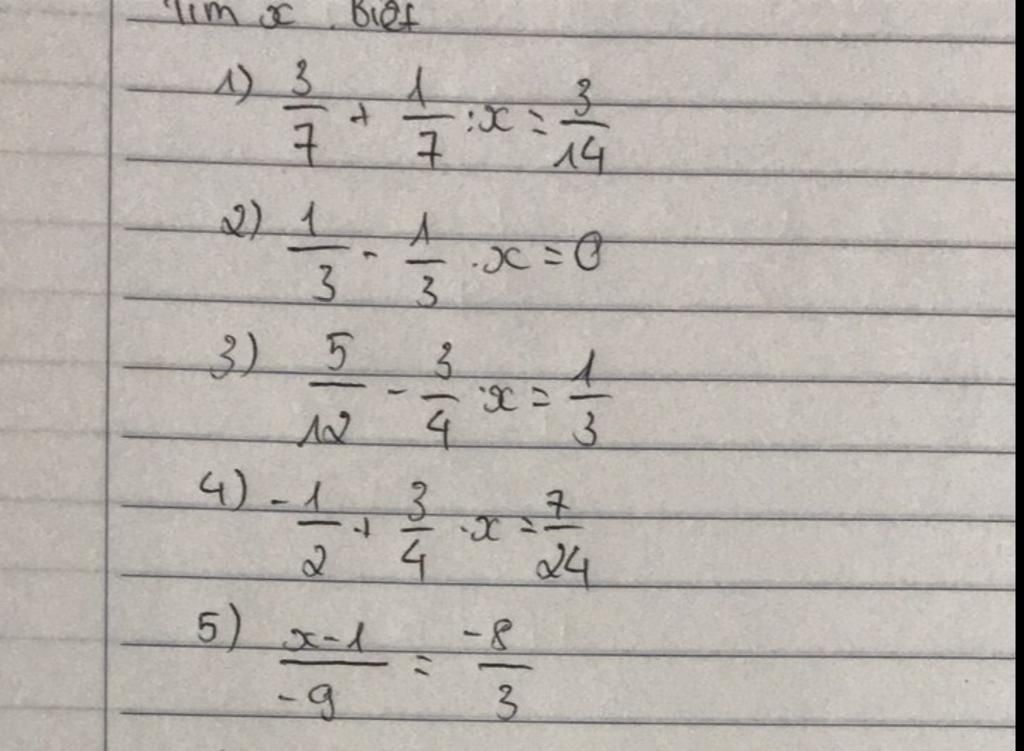 Tìm x biết
1) 3/7 + 1/7 : x = 3/14
2) 1/3 - 1/3 . x = 0
3) 5/12 - 3/4 . x = 1/3
4) -1/2 + 3/4 . x = 7/24
5) x-1/-9 = -8/3